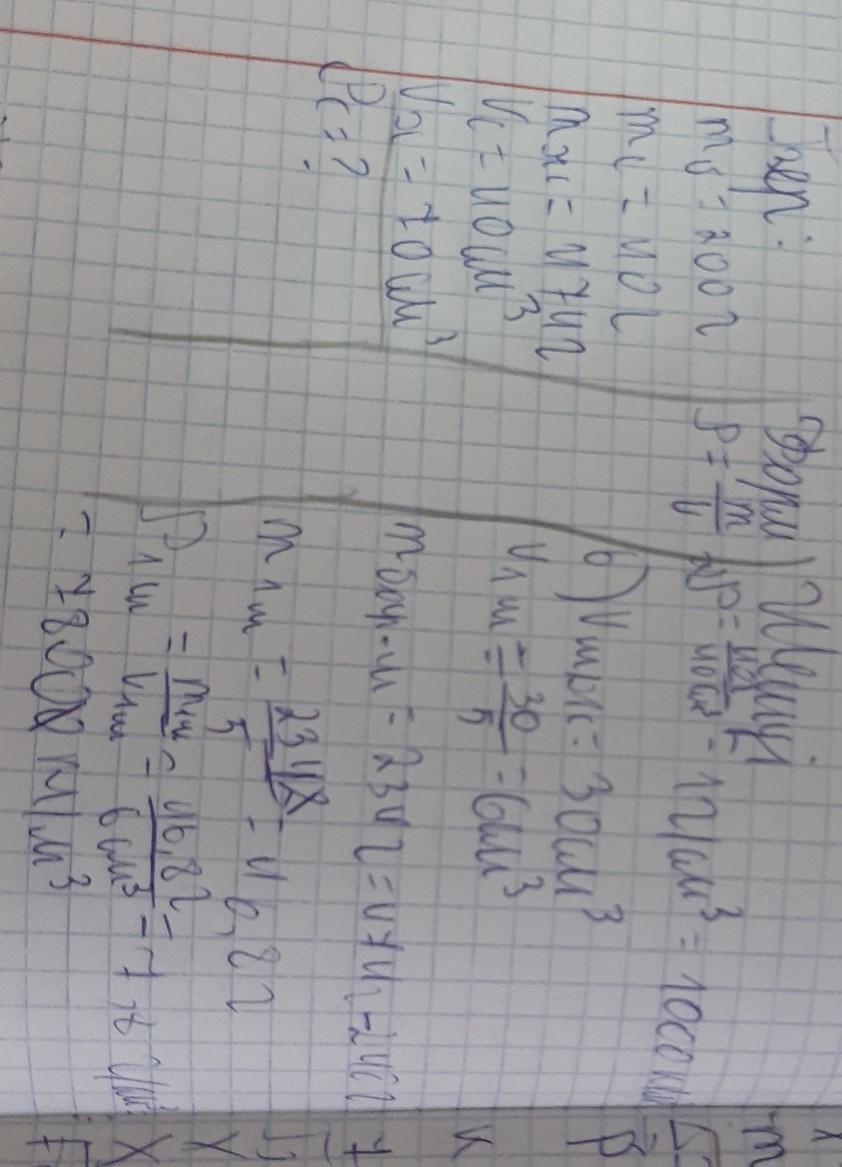 Бер:
m₀ = 200г
mc = 40г
mжс = 474г
Vc = 40см³
V2 = 70см³
ρc = ?
Форм
ρ = m/V
Шешуі:
ρ = 40г/40см³ = 1г/см³ = 1000 кг/м³
б) Vшож = 30см³
V1ш = 30/5 = 6см³
mбар.ш = 234г = 474г - 240г
m1ш = 234г/5 = 46,8г
ρ1ш = m1ш/V1ш = 46,8г/6см³ = 7,8 г/см³
= 7800 кг/м³